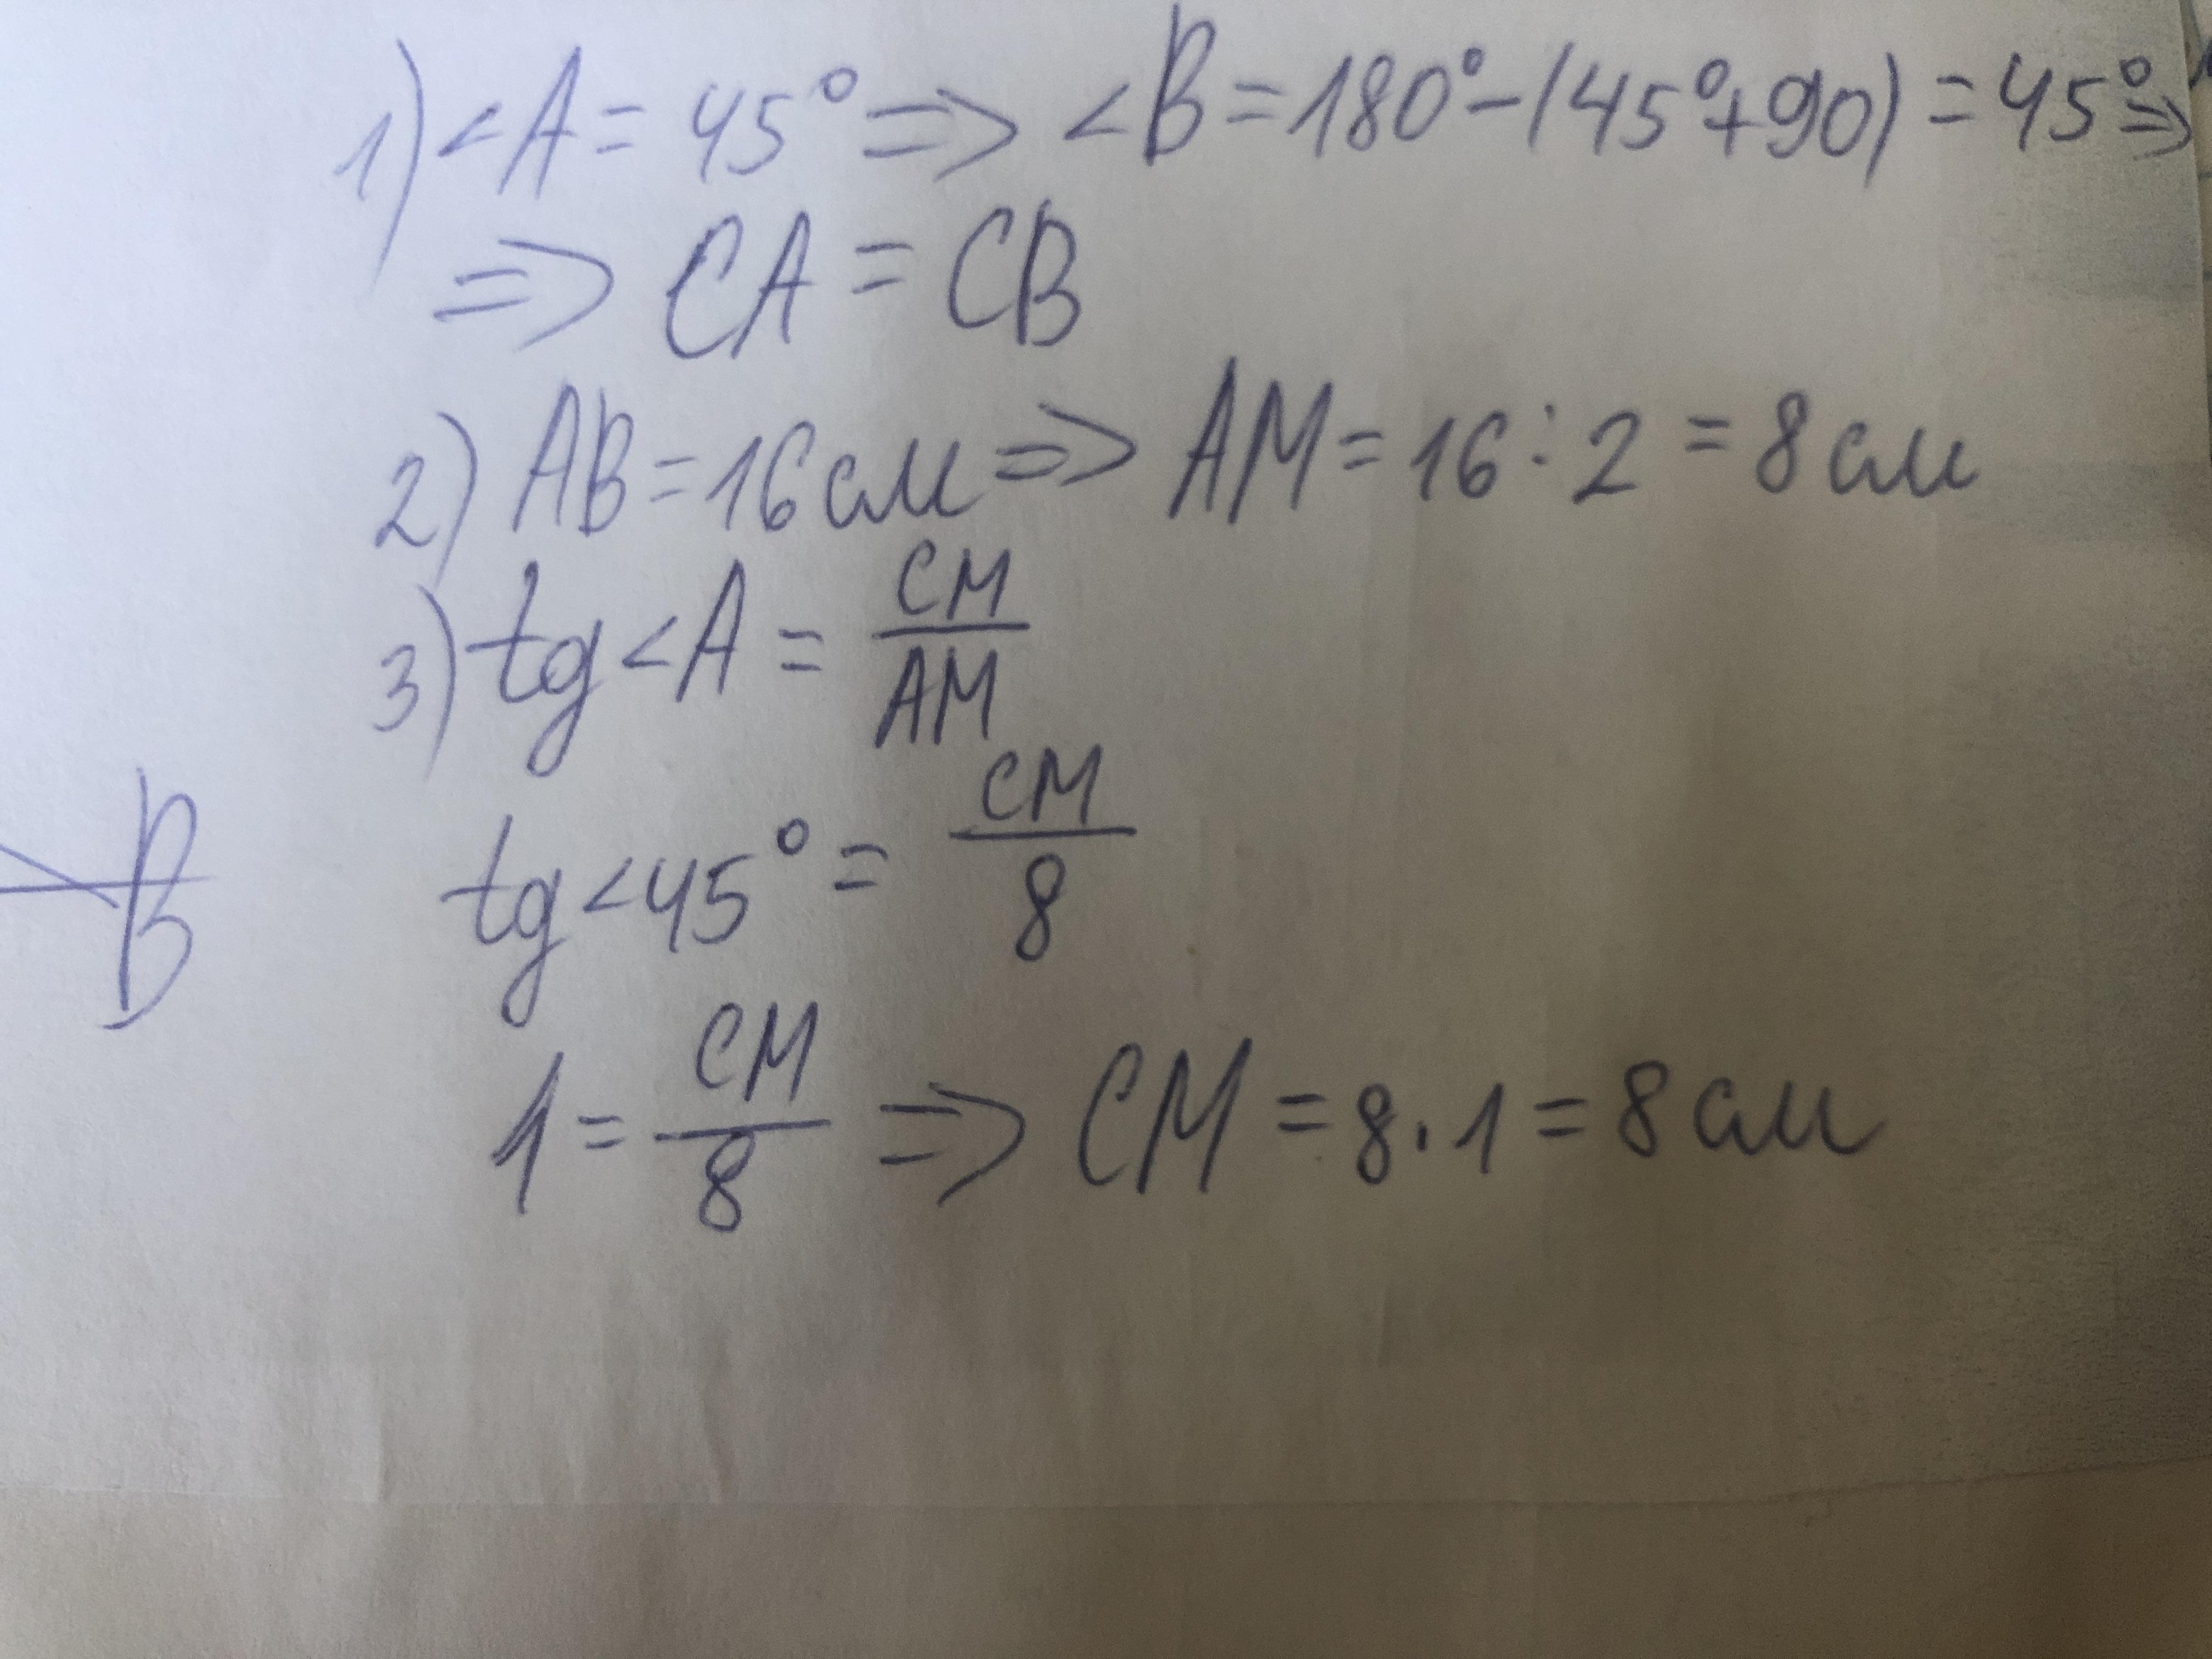 1) <A = 45° => <B = 180° - (45° + 90) = 45° =>
=> CA = CB
2) AB = 16 см => AM = 16 : 2 = 8 см
3) tg <A = CM/AM
tg <45° = CM/8
B
1 = CM/8 => CM = 8 · 1 = 8 см